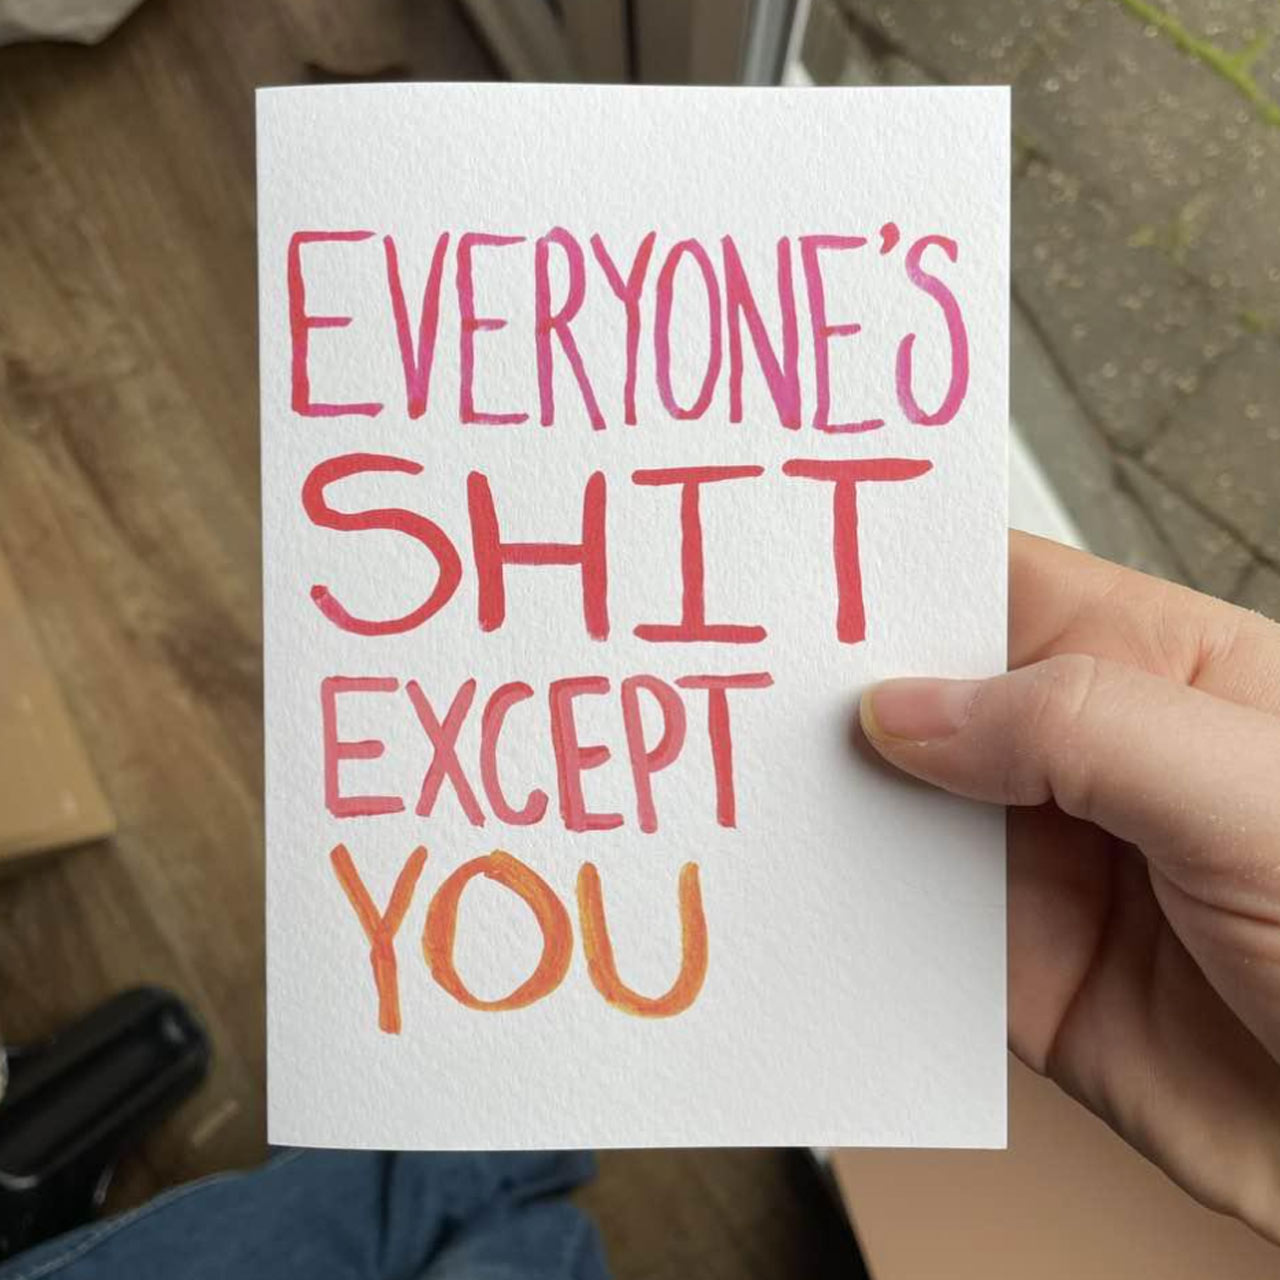 EVERYONE'S
SHIT
EXCEPT
YOU